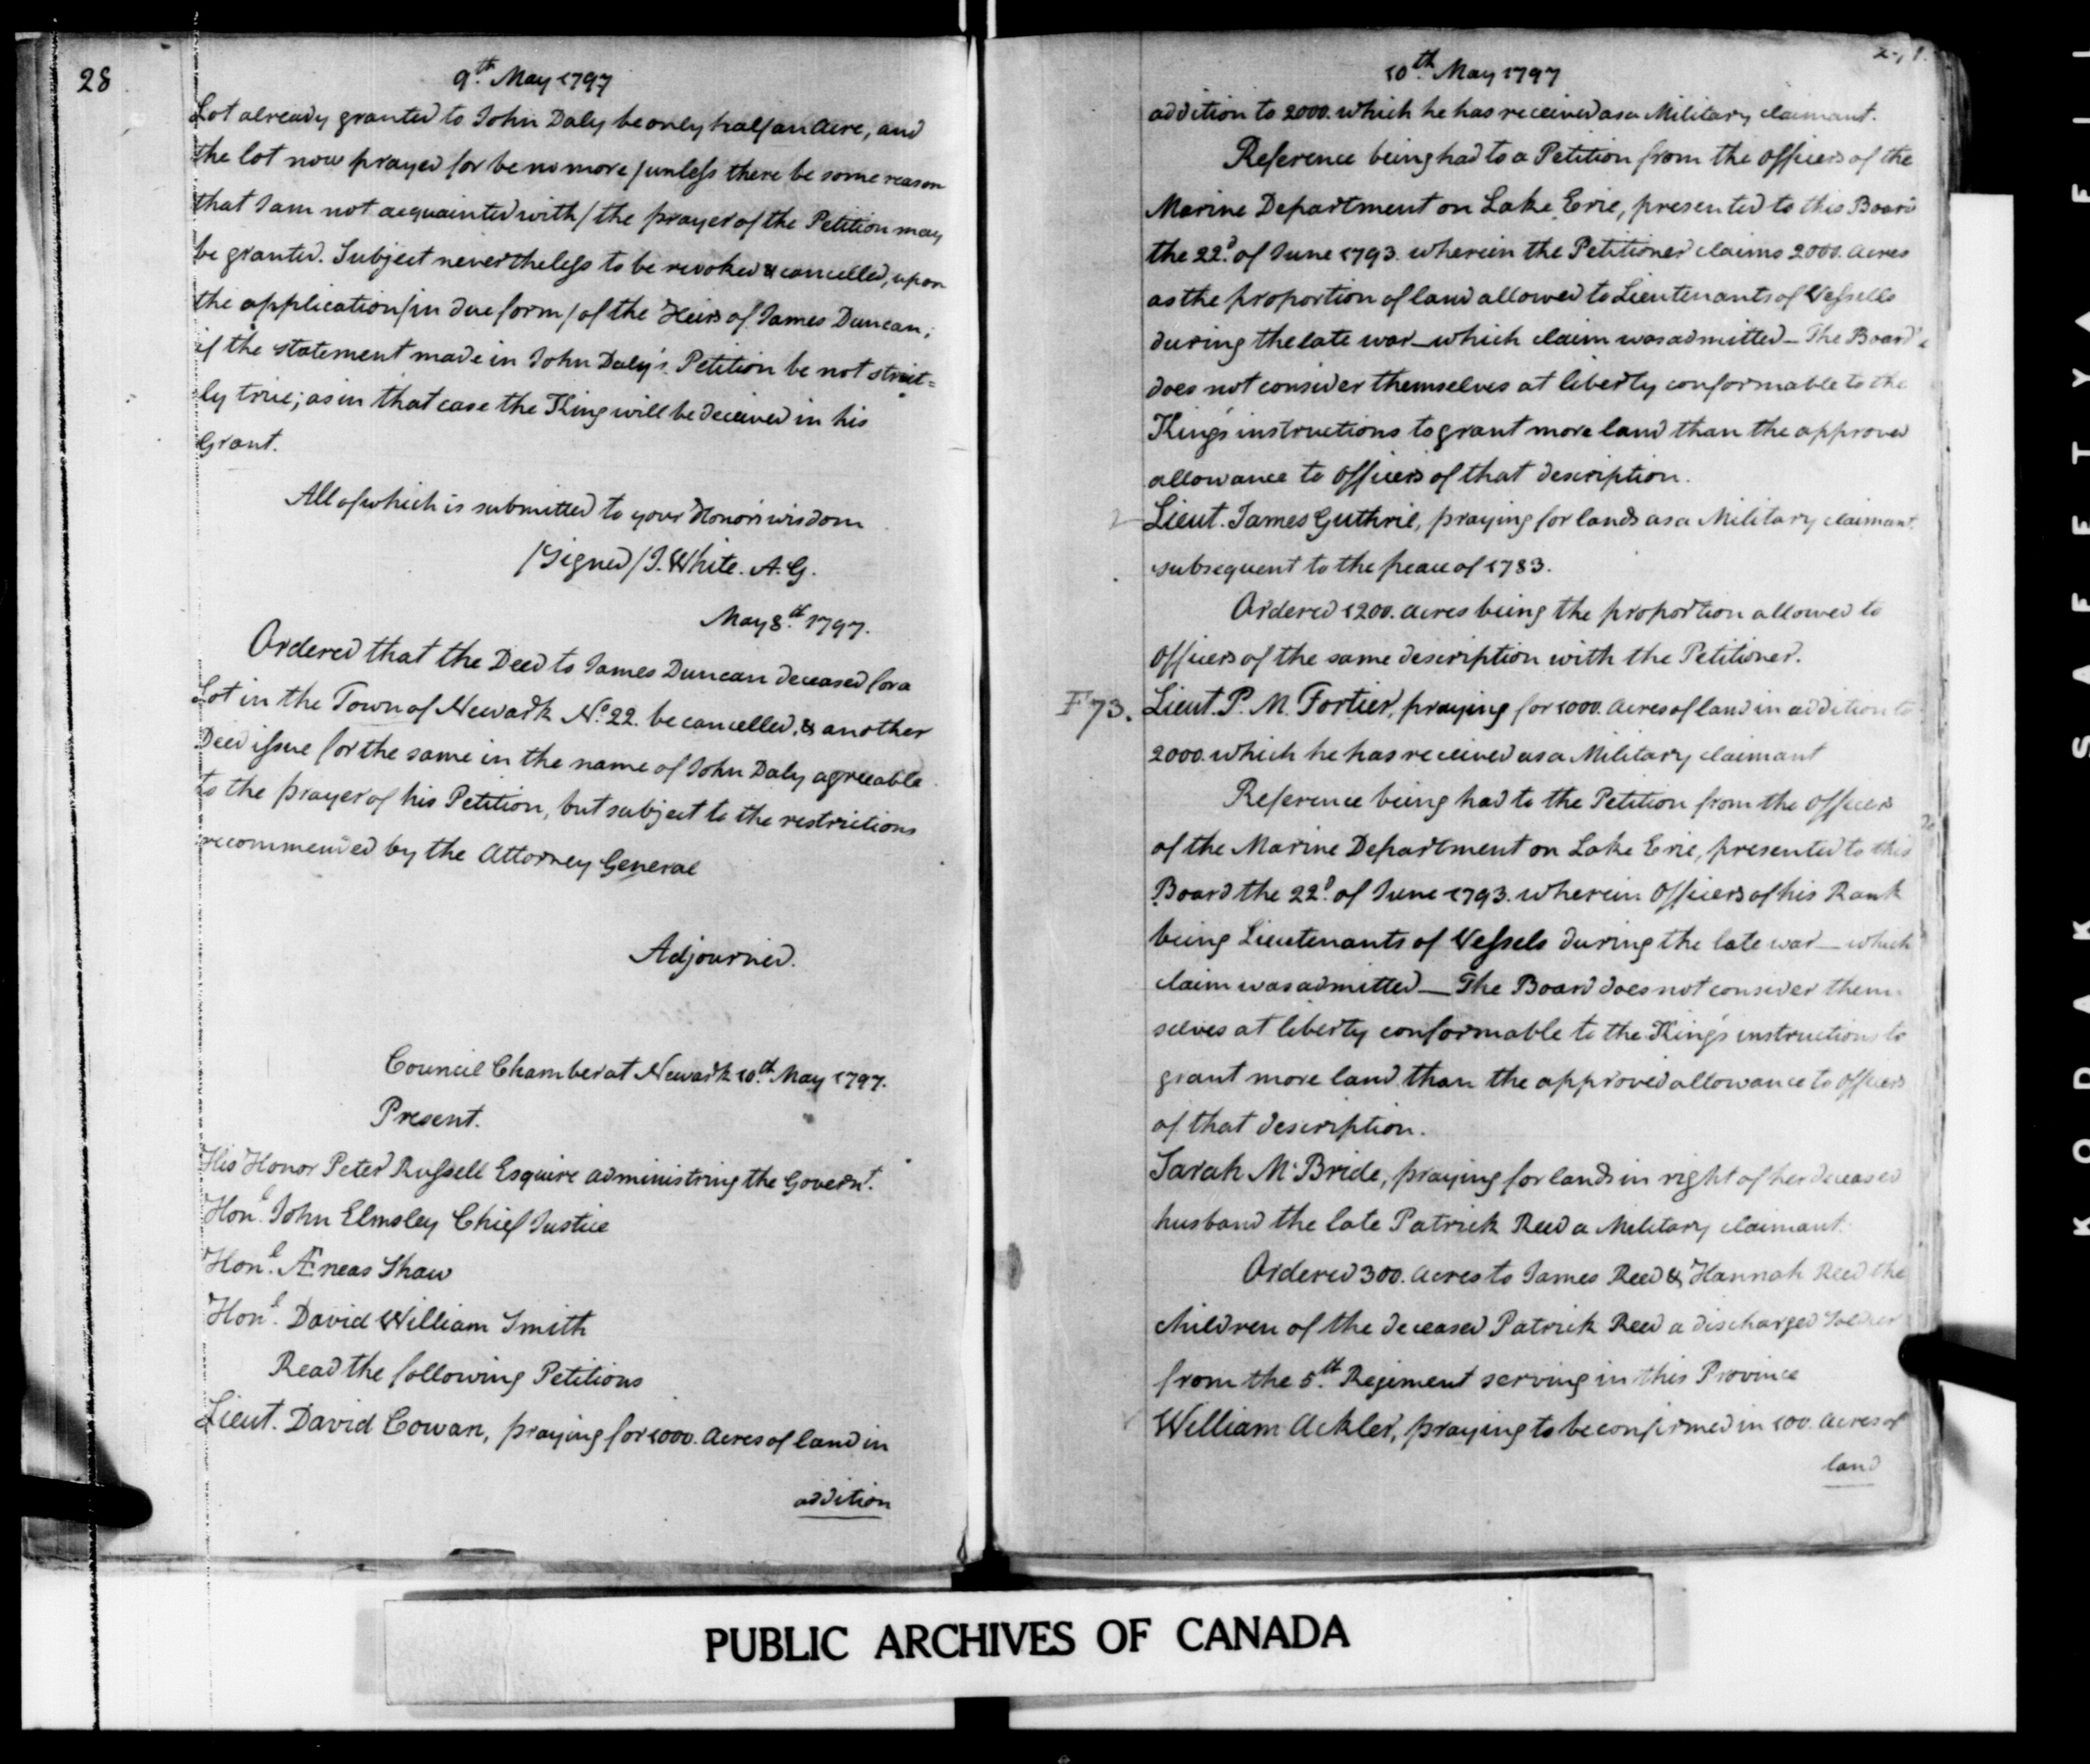 28
9th May 1797
Lot already granted to John Daly be only half an Acre, and
the lot now prayed for be no more / unless there be some reason
that I am not acquainted with / the prayer of the Petition may
be granted. Subject nevertheless to be revoked & cancelled, upon
the application / in due form / of the Heirs of James Duncan;
if the statement made in John Daly's Petition be not strict=
ly true; as in that case the King will be deceived in his
Grant.
All of which is submitted to your Honor's wisdom
/Signed/ J. White. A. G.
May 8th 1797.
Ordered that the Deed to James Duncan deceased for a
Lot in the Town of Newark No. 22. be cancelled, & another
Deed issue for the same in the name of John Daly agreeable
to the prayer of his Petition, but subject to the restrictions
recommended by the Attorney General
Adjourned.
Council Chamber at Newark 10th May 1797.
Present.
His Honor Peter Russell Esquire administring the Governt.
Honl. John Elmsley Chief Justice
Honl. Æneas Shaw
Honl. David William Smith
Read the following Petitions
Lieut. David Cowan, praying for 1000. Acres of land in
addition
10th May 1797
addition to 2000. which he has received as a Military claimant.
Reference being had to a Petition from the Officers of the
Marine Department on Lake Erie, presented to this Board
the 22d. of June 1793. wherein the Petitioner claims 2000. Acres
as the proportion of land allowed to Lieutenants of Vessells
during the late war—which claim was admitted—The Board
does not consider themselves at liberty conformable to the
King's instructions to grant more land than the approved
allowance to Officers of that description.
Lieut. James Guthrie, praying for lands as a Military claimant
subsequent to the peace of 1783.
Ordered 1200. Acres being the proportion allowed to
Officers of the same description with the Petitioner.
F 73. Lieut. P. M. Fortier, praying for 1000. Acres of land in addition to
2000. which he has received as a Military claimant
Reference being had to the Petition from the Officers
of the Marine Department on Lake Erie, presented to this
Board the 22d. of June 1793. wherein Officers of his Rank
being Lieutenants of Vessels during the late war—which
claim was admitted—The Board does not consider them
selves at liberty conformable to the King's instructions to
grant more land than the approved allowance to Officers
of that description.
Sarah McBride, praying for lands in right of her deceased
husband the late Patrick Reed a Military claimant.
Ordered 300. Acres to James Reed & Hannah Reed the
children of the deceased Patrick Reed a discharged Soldier
from the 5th. Regiment serving in this Province
William Ackler, praying to be confirmed in 100. Acres of
land
PUBLIC ARCHIVES OF CANADA
KODAK SAFETY